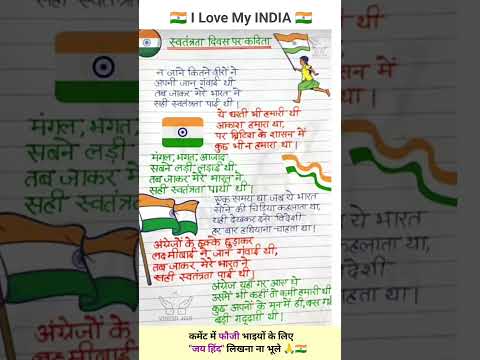 🇮🇳 I Love My INDIA 🇮🇳
स्वतंत्रता दिवस पर कविता
न जाने कितने वीरों ने
अपनी जान गंवाई थी
तब जाकर मेरे भारत ने
सही स्वतंत्रता पाई थी।
ये धरती भी हमारी थी
आकाश हमारा था,
पर ब्रिटिश के शासन में
कुछ भी न हमारा था।
मंगल, भगत, आजाद
सबने लड़ी लड़ाई थी
तब जाकर मेरे भारत ने
सही स्वतंत्रता पायी थी।
एक समय था जब ये भारत
सोने की चिड़िया कहलाता था,
यही देखकर इसे विदेशी
हर बार हथियाना चाहता था।
अंग्रेजों के छक्के छुड़ाकर
लक्ष्मीबाई ने जान गंवाई थी,
तब जाकर मेरे भारत ने
सही स्वतंत्रता पाई थी।
अंग्रेज यहाँ पर आए थे
उसमें भी कहीं तो कमी हमारी थी
कुछ अपनों के मन में ही,
बड़ी गद्दारी थी।
कमेंट में फौजी भाइयों के लिए
"जय हिंद" लिखना ना भूले 🙏🇮🇳